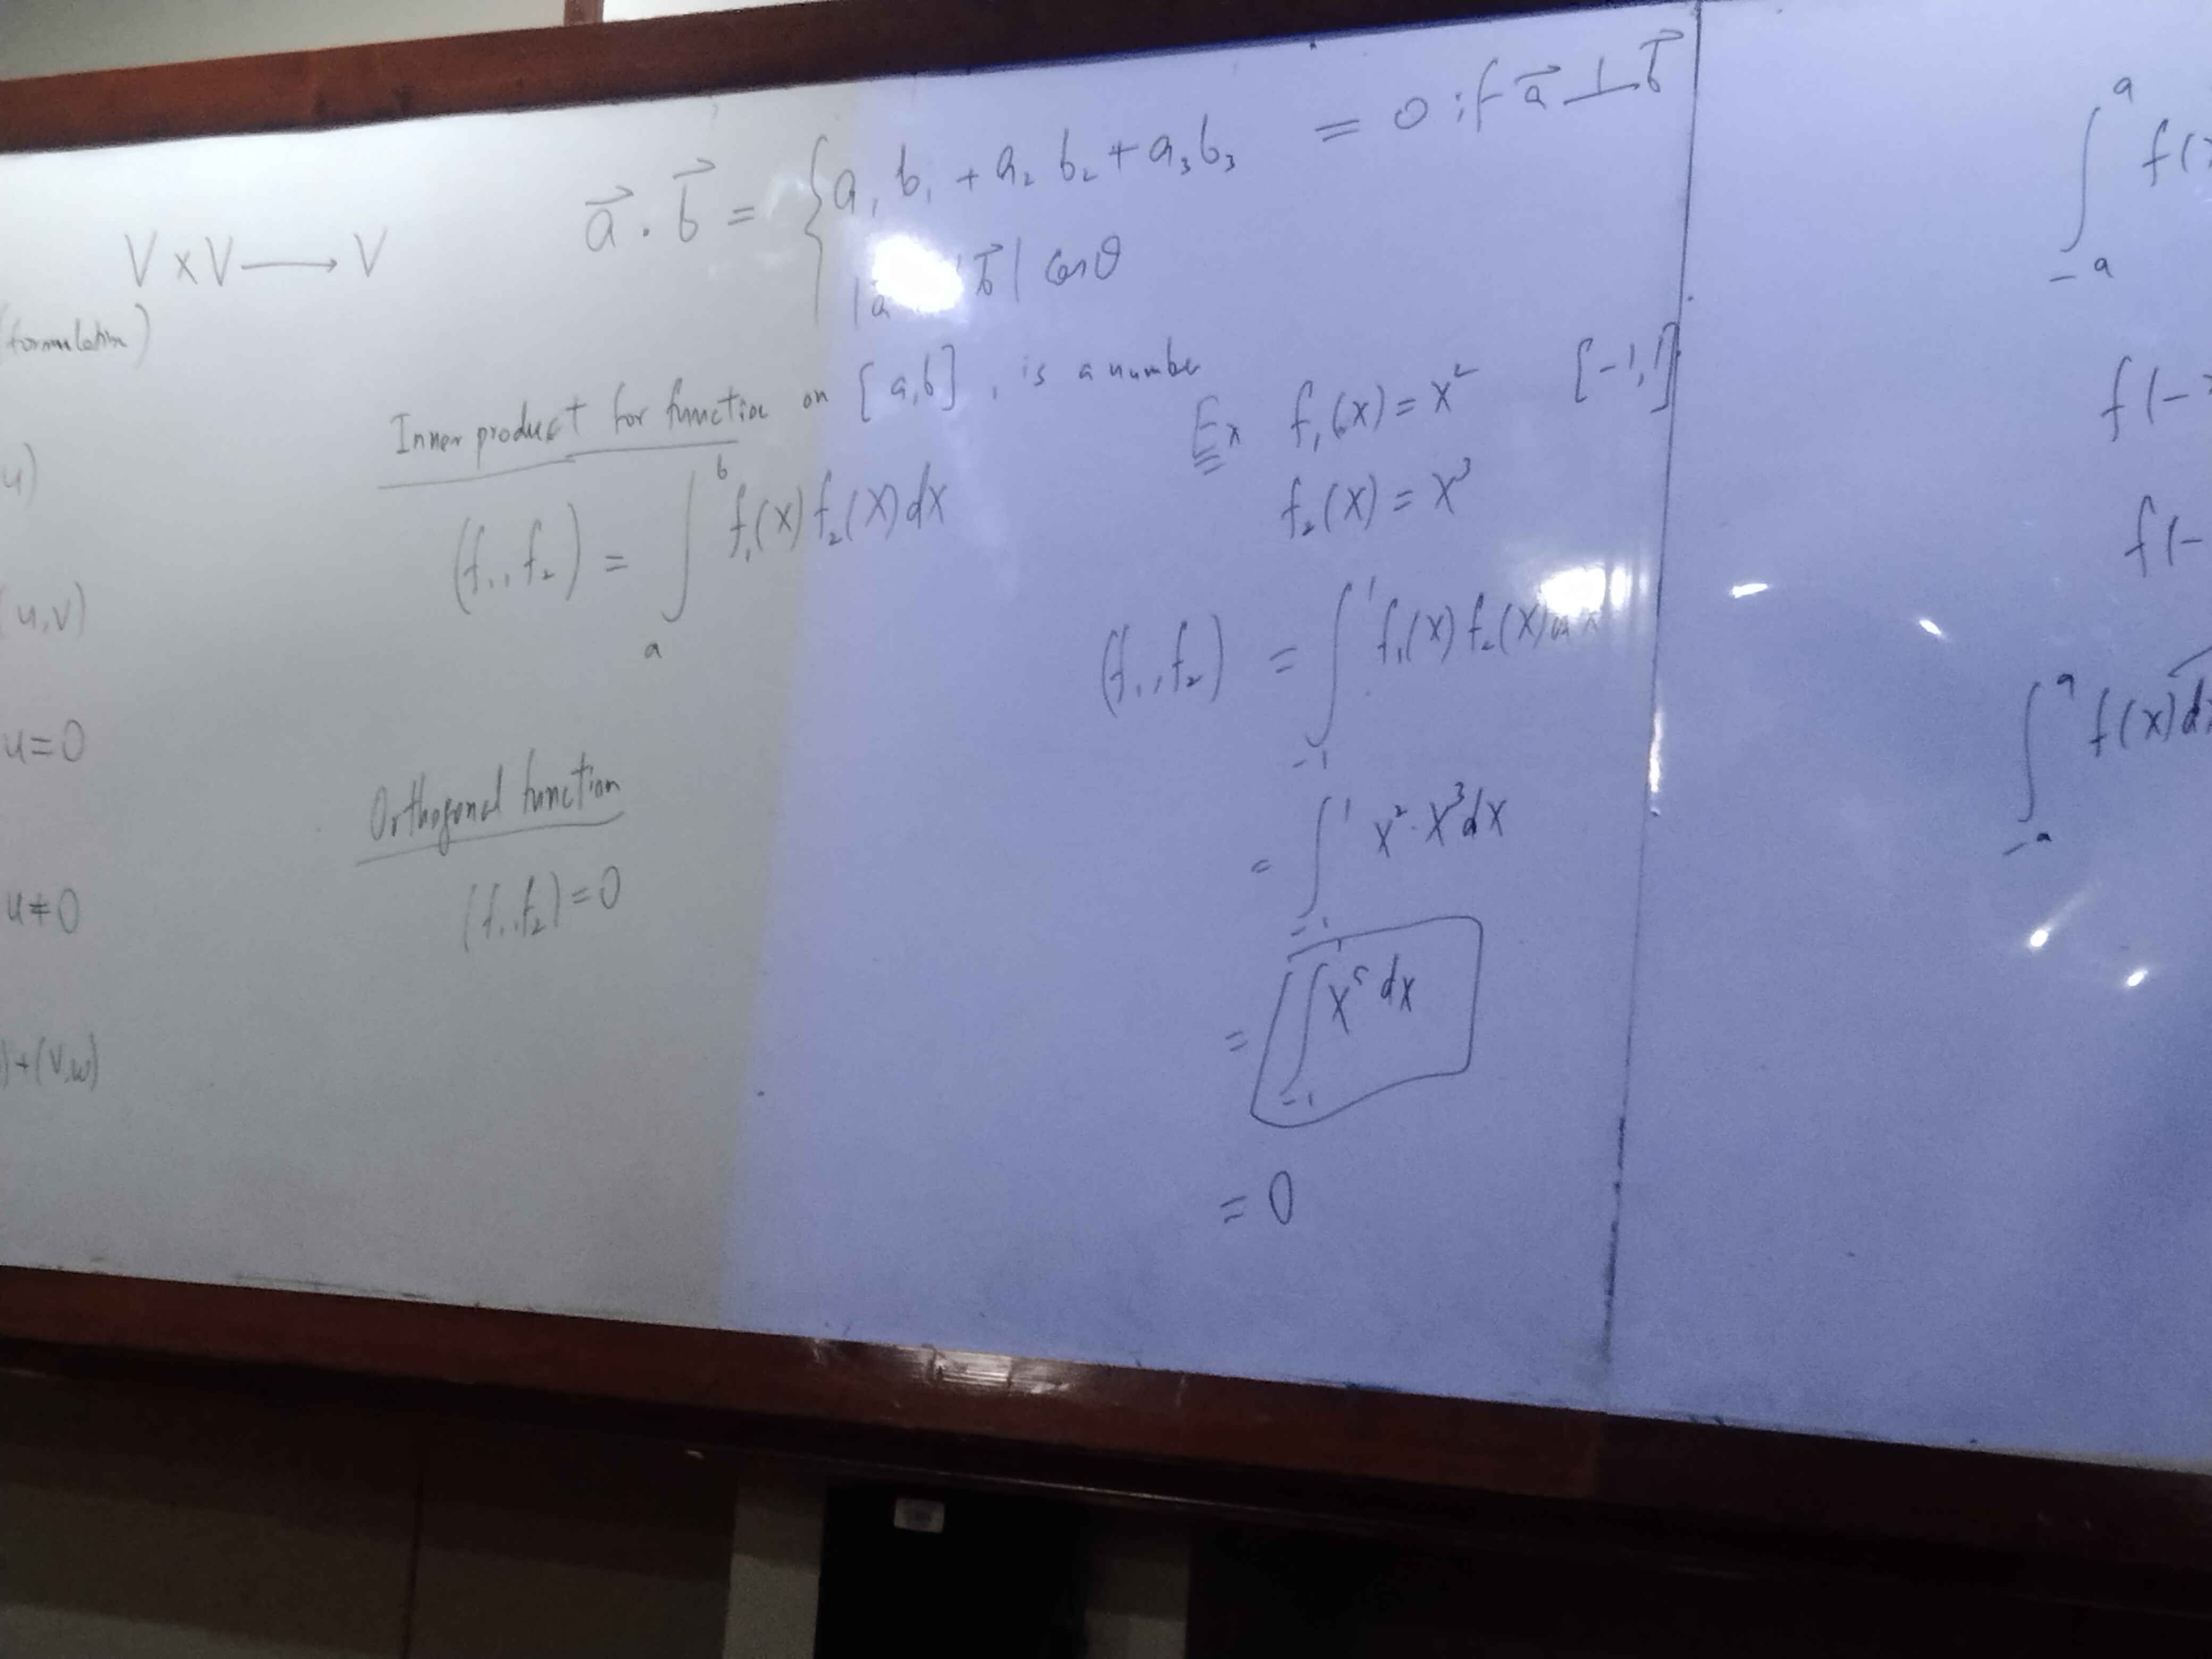 V x V ⟶ V
formulation)
u)
(u,v)
u=0
u≠0
)+(v,w)
a⃗ . b⃗ = { a₁ b₁ + a₂ b₂ + a₃ b₃ = 0 if a⃗ ⊥ b⃗
|a⃗ b⃗| cosθ
Inner product for function on [a,b], is a number
(f₁, f₂) = ∫ₐᵇ f₁(x) f₂(x) dx
Orthogonal function
(f₁, f₂) = 0
Ex f₁(x) = x² [-1,1]
f₂(x) = x³
(f₁, f₂) = ∫₋₁¹ f₁(x) f₂(x) dx
= ∫₋₁¹ x² · x³ dx
= ∫₋₁¹ x⁵ dx
= 0
∫₋ₐᵃ f(
f(-
f(-
∫₋ₐᵃ f(x) dx